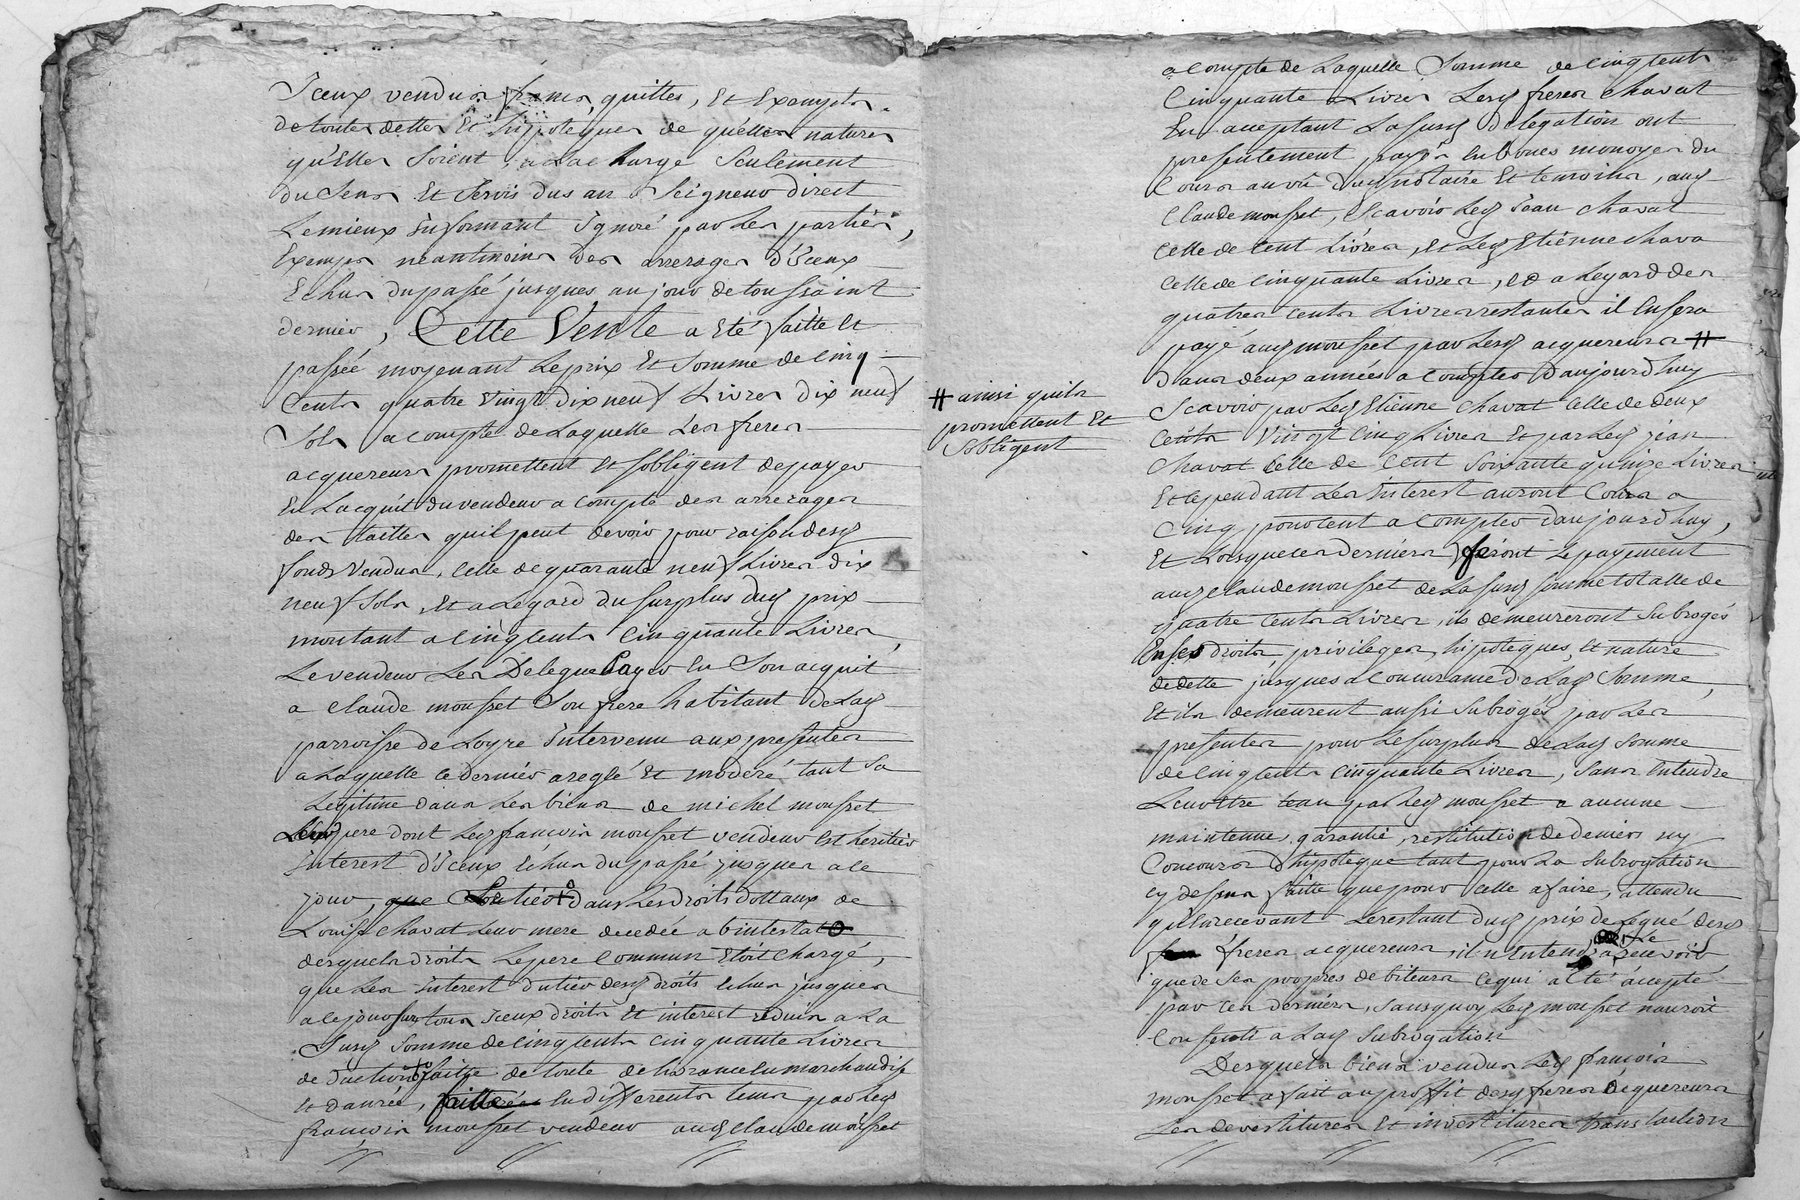 Iceux vendus francs, quittes, Et Exempts
de toutes dettes Et hipoteques de quelles natures
qu'elles soient, a la charge seulement
du Sens Et Servis dus au Seigneur direct
Le mieux informant Ignoré par Les parties,
Exemps neantmoins des arrerages d'Iceux
Echus du passé jusques au jour de toussaint
dernier, Cette Vente a Eté faitte Et
passée moyenant Le prix Et somme de cinq
Cents quatre vingt dix neuf Livres dix neuf
sols a compte de Laquelle Les freres
acquereurs promettent Et s'obligent de payer
En Lacquit du vendeur a compte des arrerages
des tailles quil peut devoir pour raison desd
fonds vendus, celle de quarante neuf Livres dix
neuf sols, Et a Legard du surplus dud prix
montant a cinq cents cinquante Livres,
Le vendeur Les Delegue Payer En son acquit
a claude mousset son frere habitant de Lad
parroisse de Loyre intervenu aux presentes
a Laquelle ce dernier a reglé Et moderé tant sa
Legitime dans Les biens de michel mousset
Leur pere dont Led françois mousset vendeur est heritier
interest d'Iceux Echus du passé jusques a ce
jour, que dans Les droits dottaux de
Louise chavat Leur mere decedée ab intestat
desquels droits Le pere commun Etoit chargé,
que Les interest du tiers desd droits echus jusques
a ce jour sur tous Iceux droits Et interest reduis a La
Susd somme de cinq cents cinquante Livres
de duction faitte de toute delivrance en marchandise
Et danrée, en differents tems par Led
françois mousset vendeur aud claude mousset
# ainsi quils
promettent Et
sobligent
a compte de Laquelle somme de cinq cents
cinquante Livres Lesd freres chavat
En acceptant La susd delegation ont
presentement payés en bones monoyes du
cours au vû dud notaire Et temoins, aud
claude mousset, scavoir Led jean chavat
celle de cent Livres, Et Led Etienne chava
celle de cinquante Livres, et a Legard des
quatres cents Livres restantes il En sera
payé aud mousset par Lesd acquereurs #
dans deux années a compter daujourdhuy
scavoir par Led Etienne chavat celle de deux
cents vingt cinq Livres Et par Led jean
chavat celle de cent soixante quinze Livres
Et cependant Les interest auront cours a
cinq pour cent a compter daujourdhuy,
Et Lorsque ces derniers feront Le payement
aud claude mousset de La susd somme totalle de
quatre cents Livres, ils demeureront subrogés
En ses droits, privileges, hipoteques, Et nature
de dette jusques a concurance de Lad somme,
Et ils demeurent aussi subrogés par Les
presentes pour Le surplus de Lad somme
de cinq cents cinquante Livres, sans entendre
Leur être tenu par Led mousset a aucune
maintenue, garantie, restitution de deniers ny
concours d'hipoteque tant pour La subrogation
cy dessus faitte que pour celle a faire, attendu
qu'en recevant Le restant dud prix delegué desd
freres acquereurs, il n'entend Le recevoir
que de ses propres debiteurs ce qui a eté accepté
par ces derniers, sans quoy Led mousset n'auroit
consenti a Lad subrogation
Desquels biens vendus Led françois
mousset a fait au proffit desd freres acquereurs
Les devestitures Et investitures translation